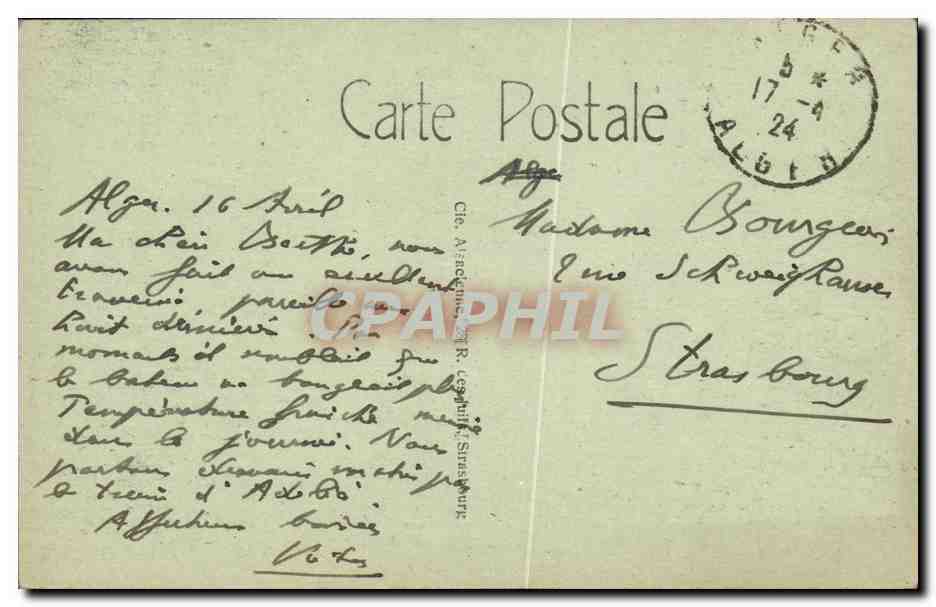 Carte Postale
ALGER
5 *
17 -4
24
ALGER
Alger
Madame Bourgeois
2 rue Schweighauser
Strasbourg
Cie. Alsacienne, R. des Juifs, Strasbourg
Alger. 16 Avril
Ma chère Berthe, nous
avons fait un excellent
traversée pareille
huit dernière. Par
moments il semblait que
le bateau ne bougeait plus
Température fraiche même
dans la journée. Nous
partons demain matin par
le train d'
Affectueux baisers
CPAPHIL